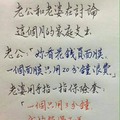 老公和老婆在討論
這個月的家庭支出
老公:「妳看花錢買面膜
一個面膜只用20分鐘浪費」
老婆用手指一指保險套
「一個只用3分鐘